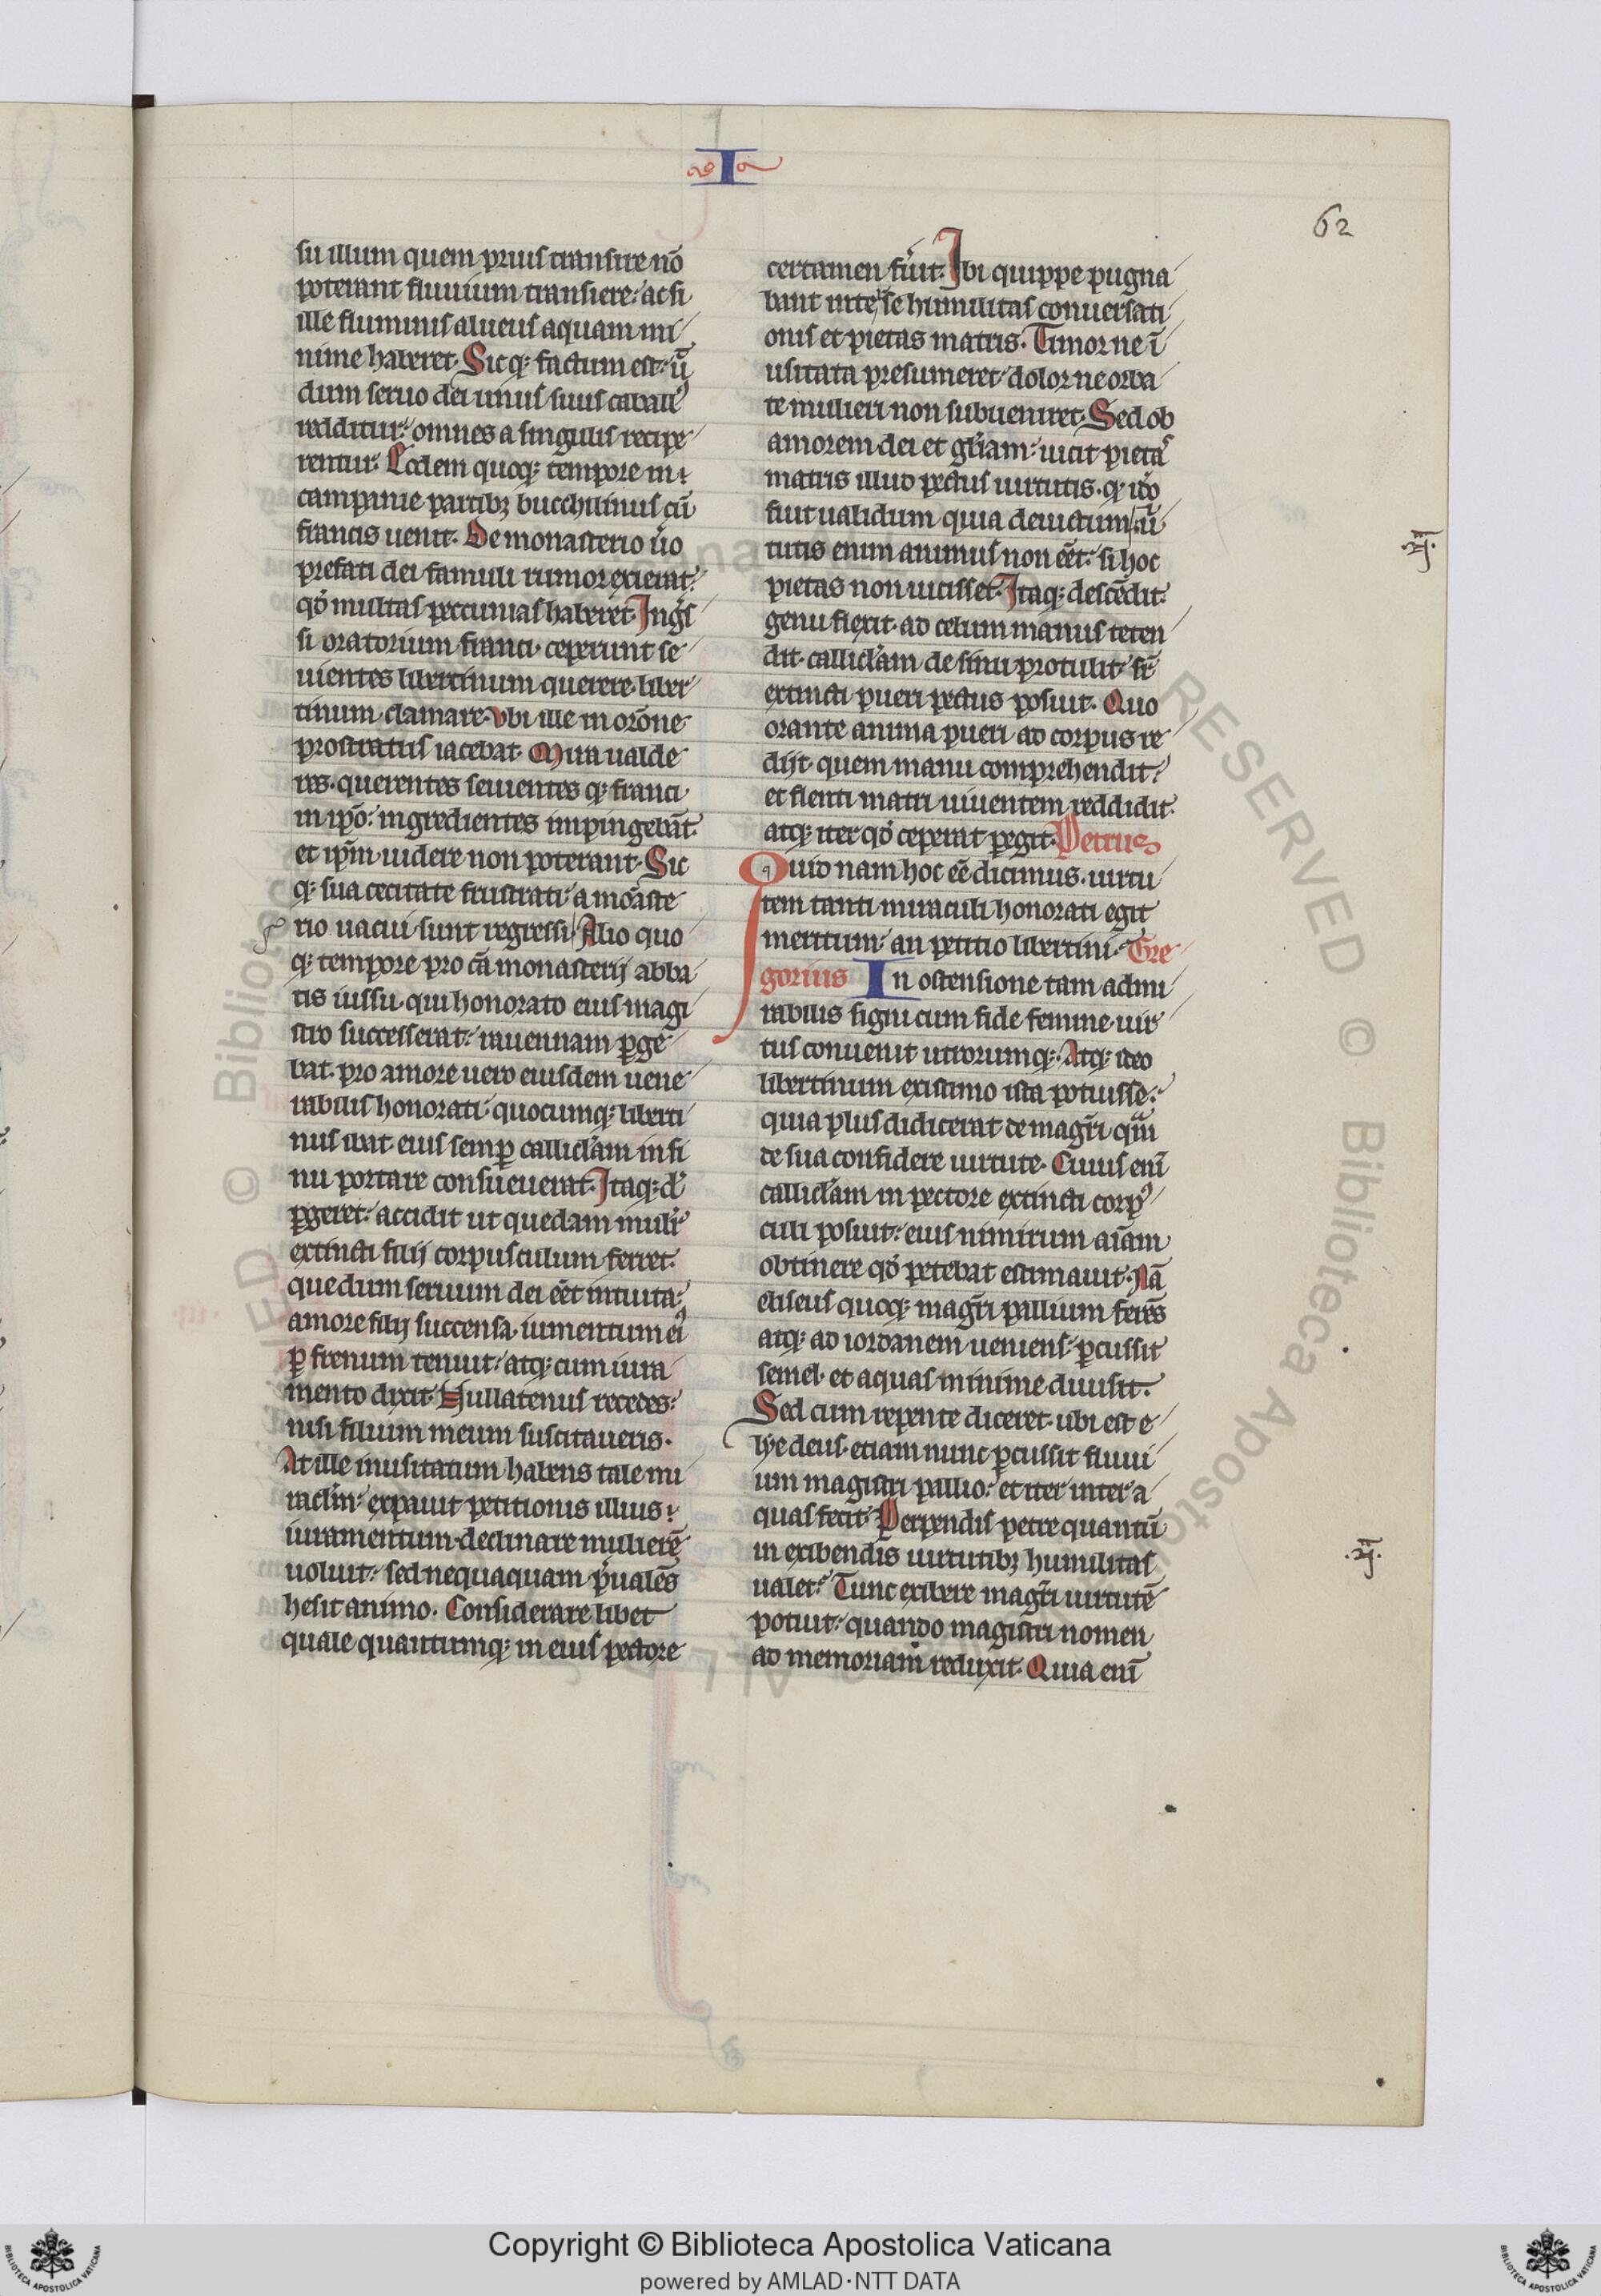 I
62
su illum quem prius transire nō
poterant fluuium transiere. ac si
ille fluminis alueus aquam mi
nime haberet. Sicq; factum est. ū
dum seruo dei unus suus caball'
redditur. omnes a singulis recipe
rentur. Eodem quoq; tempore in
campanie partibz bucchilinus cū
francis uenit. De monasterio u̓o
prefati dei famuli rumor exierat.
qd̓ multas peccunias haberet. Ingͥs
si oratorium franci. ceperunt se
uientes libertinum querere. liber
tinum clamare. Vbi ille in orōne
prostratus iacebat. Mira ualde
res. querentes seuientes q; franci
in ip̄o. ingredientes impingebāt.
et ip̄m uidere non poterant. Sic
q; sua cecitate frustrati. a monaste
rio uacui sunt regressi. Alio quo
q; tempore pro cā monasterij abba
tis iussu. qui honorato eius magi
stro successerat. rauennam ꝑge
bat. pro amore uero eiusdem uene
rabilis honorati. quocumq; liberti
nus ibat eius semꝑ calliclam in si
nu portare consueuerat. Itaq; dū
ꝑgeret. accidit ut quedam muli͛
extincti filij corpusculum ferret.
que dum seruum dei eēt intuita.
amore filij succensa. iumentum ei͛
ꝑ frenum tenuit. atq; cum iura
mento dixit. Nullatenus recedes.
nisi filium meum suscitaueris.
At ille inusitatum habens tale mi
raclm̄. expauit petitionis illius
iuramentum. declinare mulierē
uoluit. sed nequaquam p̓ualēs
hesit animo. Considerare libet
quale quantumq; in eius pectore
certamen fu̓it. Ibi quippe pugna
bant int̓ se humilitas conuersati
onis et pietas matris. Timor ne ī
usitata presumeret. dolor ne orba
te mulieri non subueniret. Sed ob
amorem dei et gl̓iam. uicit pietas
matris illud pectus uirtutis. q; ido
fuit ualidum quia deuictum. u̓
tutis enim animus non eēt. si hoc
pietas non uicisset. Itaq; descēdit.
genu flexit. ad celum manus teten
dit. calliclam de sinu protulit. sr̄
extincti pueri pectus posuit. Quo
orante anima pueri ad corpus re
dijt. quem manu comprehendit.
et flenti matri uiuentem reddidit.
atq; iter qd̓ ceperat pegit. Petrus
Quid nam hoc eē dicimus. uirtu
tem tanti miraculi honorati egit
meritum. an petitio libertini. Gre
gorius In ostensione tam admi
rabilis signi cum fide femine. uir
tus conuenit utrorumq;. Atq; ideo
libertinum existimo ista potuisse.
quia plus didicerat de magr̄i qm̄
de sua confidere uirtute. Cuius enī
calliclam in pectore extincti corp͛
culi posuit. eius nimirum aīam
obtinere qd̓ petebat estimauit. Nā
eliseus quoq; magr̄i pallium ferēs
atq; ad iordanem ueniens. ꝑcussit
semel. et aquas minime diuisit.
Sed cum repente diceret. ubi est e
lye deus. etiam nunc ꝑcussit fluui
um magistri pallio. et iter inter a
quas fecit. Perpendis petre quantū
in exibendis uirtutibz humilitas
ualet. Tunc exibere magr̄i uirtutē
potuit. quando magistri nomen
ad memoriam reduxit. Quia enī
Copyright © Biblioteca Apostolica Vaticana
powered by AMLAD·NTT DATA